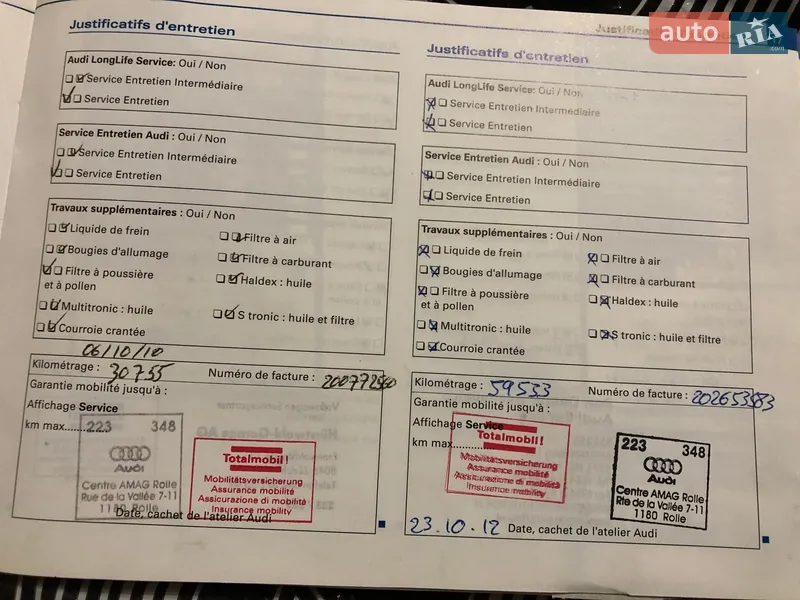 Justificatifs d'entretien
Audi LongLife Service: Oui / Non
Service Entretien Intermédiaire
Service Entretien
Service Entretien Audi : Oui / Non
Service Entretien Intermédiaire
Service Entretien
Travaux supplémentaires : Oui / Non
Liquide de frein
Filtre à air
Bougies d'allumage
Filtre à carburant
Filtre à poussière
et à pollen
Haldex : huile
Multitronic : huile
S tronic : huile et filtre
Courroie crantée
06/10/10
Kilométrage : 30755
Numéro de facture :
Garantie mobilité jusqu'à :
Affichage Service
km max.
223 348
Audi
Centre AMAG Rolle
Rue de la Vallée 7-11
1180 Rolle
Totalmobil!
Mobilitätsversicherung
Assurance mobilité
Assicurazione di mobilità
Insurance mobility
Date, cachet de l'atelier Audi
Justificatifs d'entretien
Audi LongLife Service: Oui / Non
Service Entretien Intermédiaire
Service Entretien
Service Entretien Audi : Oui / Non
Service Entretien Intermédiaire
Service Entretien
Travaux supplémentaires : Oui / Non
Liquide de frein
Filtre à air
Bougies d'allumage
Filtre à carburant
Filtre à poussière
et à pollen
Haldex : huile
Multitronic : huile
S tronic : huile et filtre
Courroie crantée
Kilométrage : 59533
Numéro de facture :
Garantie mobilité jusqu'à :
Affichage Service
km max.
Totalmobil!
Mobilitätsversicherung
Assurance mobilité
Assicurazione di mobilità
Insurance mobility
223 348
Audi
Centre AMAG Rolle
Rte de la Vallée 7-11
1180 Rolle
23.10.12 Date, cachet de l'atelier Audi
auto RIA
.com